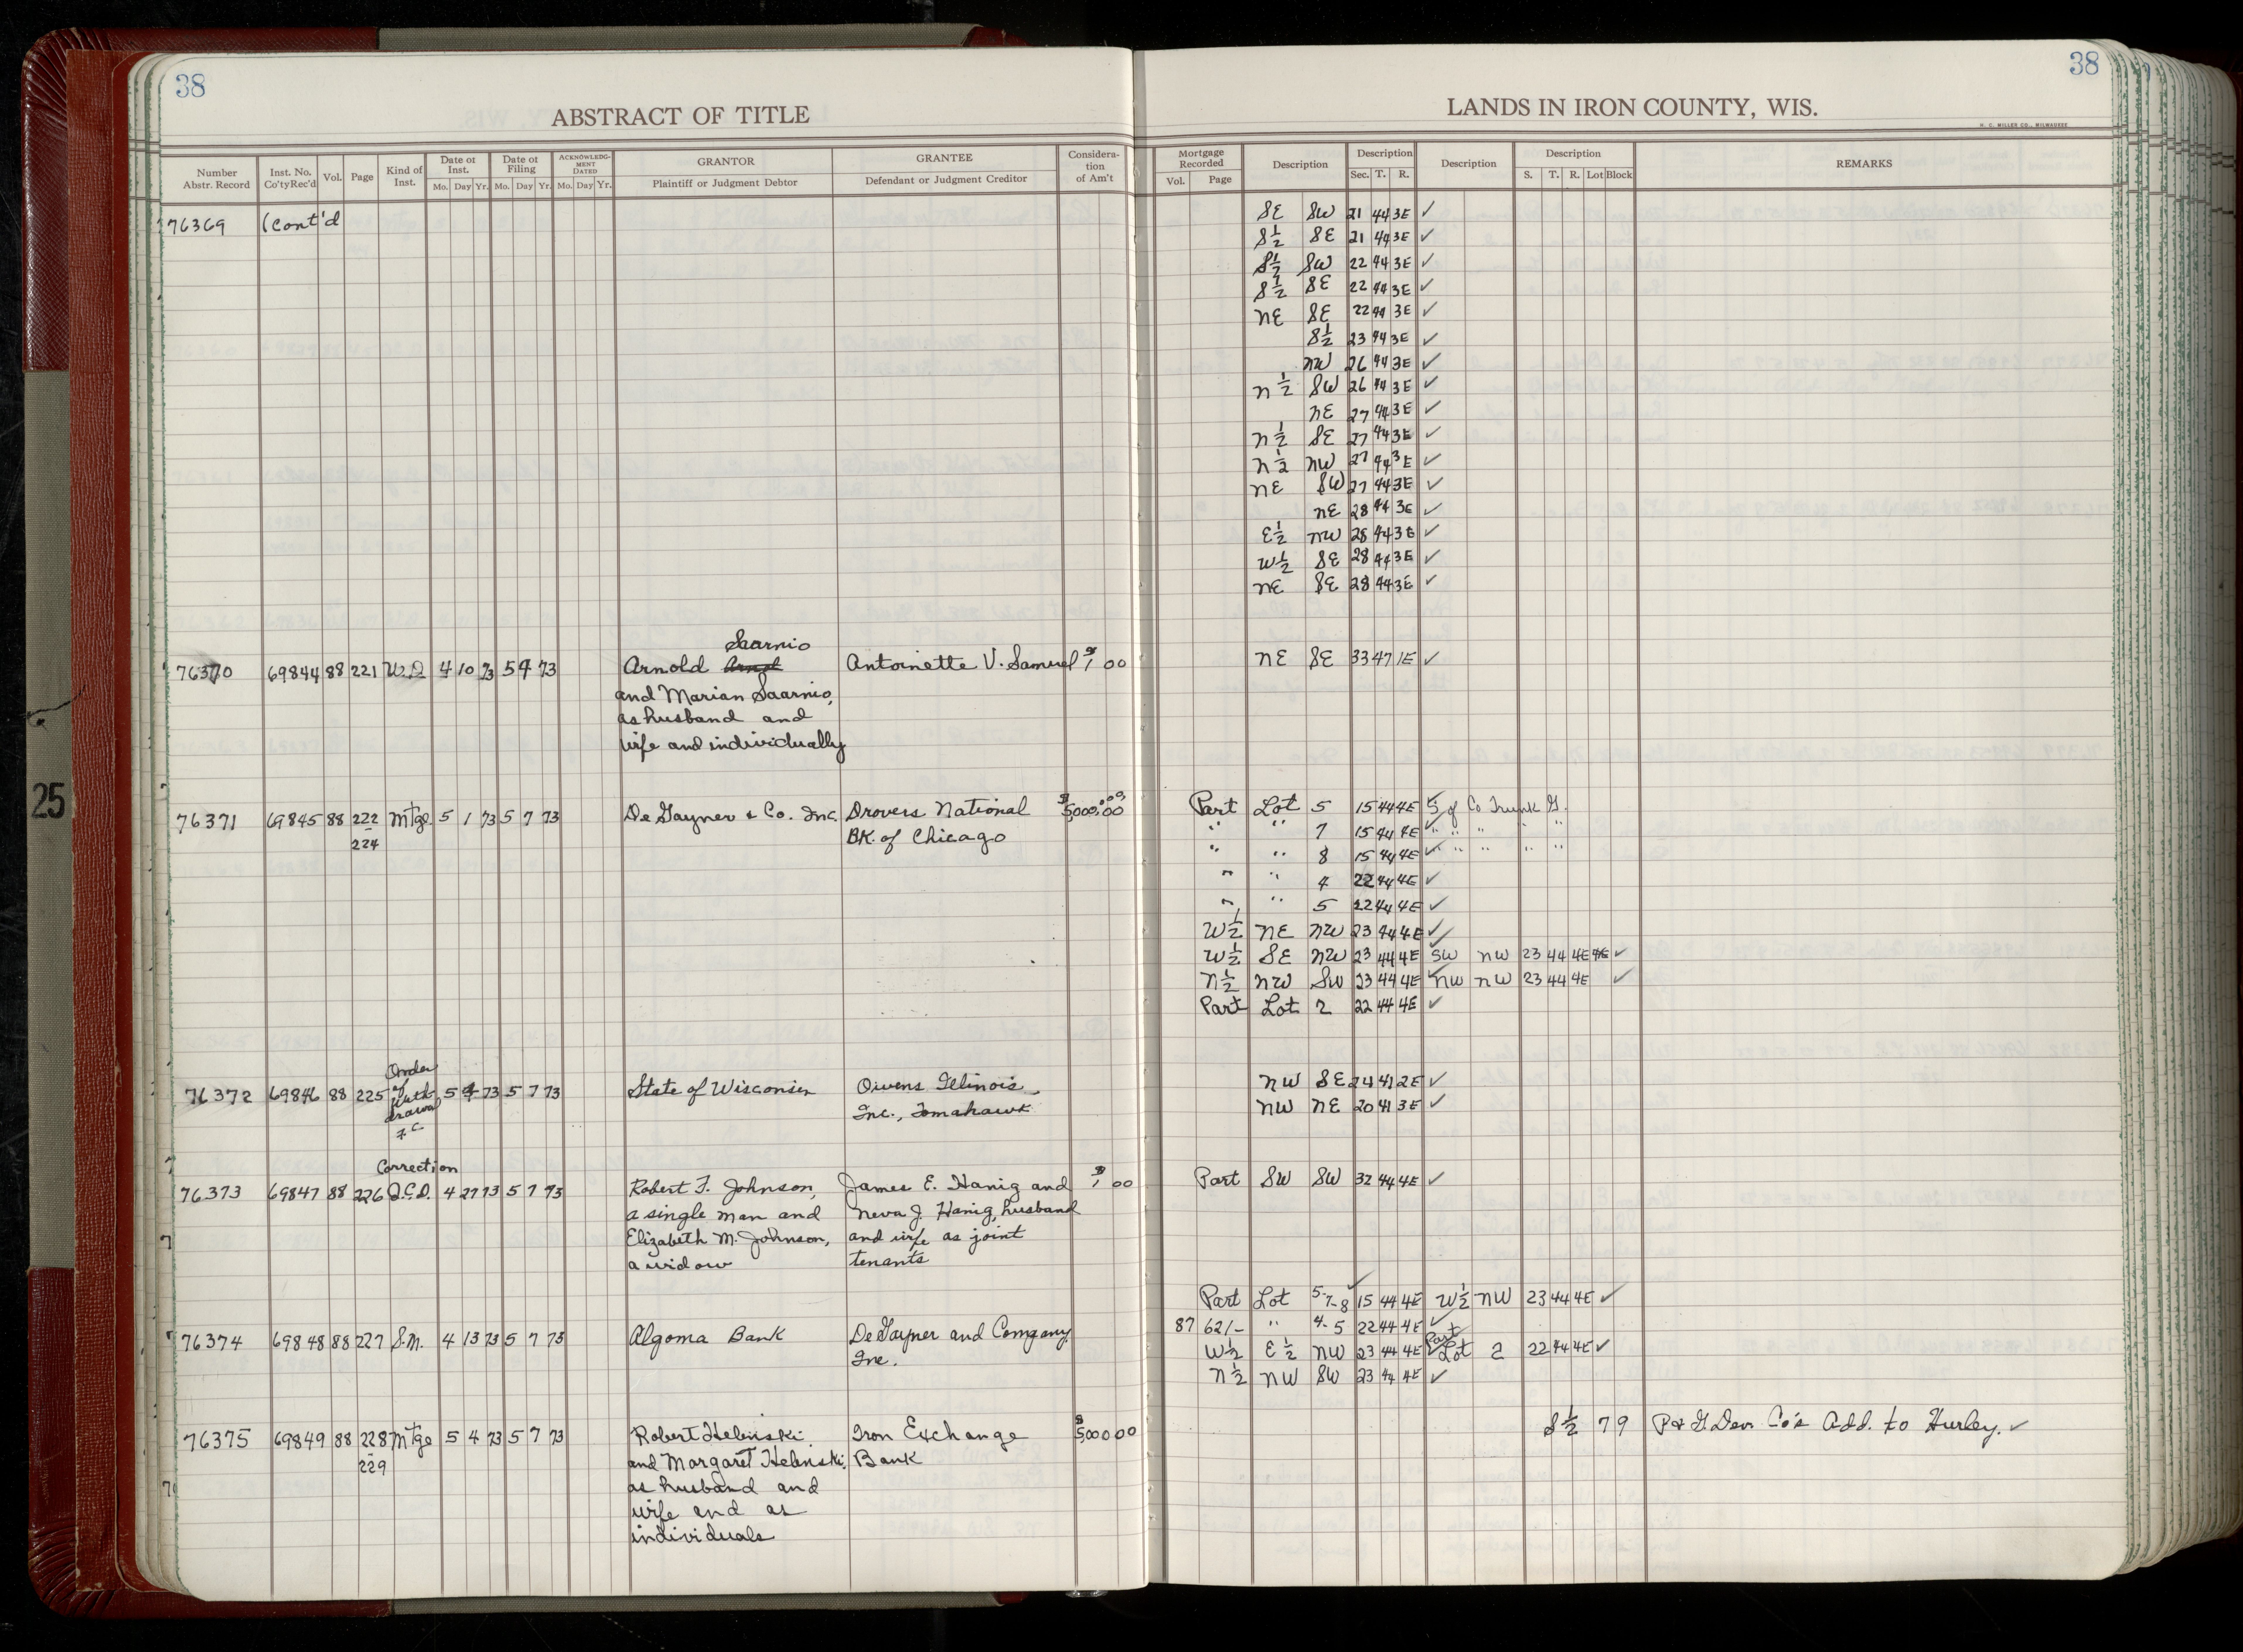 38
ABSTRACT OF TITLE
Number Abstr. Record | Inst. No. Co'ty Rec'd | Vol. | Page | Kind of Inst. | Date of Inst. Mo. Day Yr. | Date of Filing Mo. Day Yr. | ACKNOWLEDGMENT DATED Mo. Day Yr. | GRANTOR Plaintiff or Judgment Debtor | GRANTEE Defendant or Judgment Creditor | Consideration of Am't
76369 (Cont'd
Saarnio
76370 69844 88 221 W.D. 4 10 73 5 7 73 Arnold Antoinette V. Samuel $1 00
and Marian Saarnio,
as husband and
wife and individually
76371 69845 88 222 Mtge 5 1 73 5 7 73 De Gayner & Co. Inc. Drovers National $5000.00
- 224 BK. of Chicago
76372 69846 88 225 Order of Withdrawal F.C. 5 4 73 5 7 73 State of Wisconsin Owens Illinois,
Inc., Tomahawk
Correction
76373 69847 88 226 Q.C.D. 4 27 73 5 7 73 Robert F. Johnson, James E. Hanig and $1 00
a single man and Neva J. Hanig, husband
Elizabeth M. Johnson, and wife as joint
a widow tenants
76374 69848 88 227 S.M. 4 13 73 5 7 73 Algoma Bank DeGayner and Company
Inc.
76375 69849 88 228 Mtge 5 4 73 5 7 73 Robert Helinski Iron Exchange $5000 00
- 229 and Margaret Helinski, Bank
as husband and
wife and as
individuals
25
38
LANDS IN IRON COUNTY, WIS.
H. C. MILLER CO., MILWAUKEE
Mortgage Recorded Vol. Page | Description | Description Sec. T. R. | Description | Description S. T. R. Lot Block | REMARKS
SE SW 21 44 3E ✓
S½ SE 21 44 3E ✓
S½ SW 22 44 3E ✓
S½ SE 22 44 3E ✓
NE SE 22 44 3E ✓
S½ 23 44 3E ✓
NW 26 44 3E ✓
N½ SW 26 44 3E ✓
NE 27 44 3E ✓
N½ SE 27 44 3E ✓
N½ NW 27 44 3E ✓
NE SW 27 44 3E ✓
NE 28 44 3E ✓
E½ NW 28 44 3E ✓
W½ SE 28 44 3E ✓
NE SE 28 44 3E ✓
NE SE 33 47 1E ✓
Part Lot 5 15 44 4E ✓ S of Co Trunk G.
" " 7 15 44 4E ✓ " " " " "
" " 8 15 44 4E ✓ " " " " "
" " 4 22 44 4E ✓
" " 5 22 44 4E ✓
W½ NE NW 23 44 4E ✓
W½ SE NW 23 44 4E ✓ SW NW 23 44 4E 4E ✓
N½ NW SW 23 44 4E ✓ NW NW 23 44 4E ✓
Part Lot 2 22 44 4E ✓
NW SE 24 41 2E ✓
NW NE 20 41 3E ✓
Part SW SW 32 44 4E ✓
Part Lot 5-7-8 15 44 4E ✓ W½ NW 23 44 4E ✓
87 621- " 4-5 22 44 4E ✓
W½ E½ NW 23 44 4E ✓ Part Lot 2 22 44 4E ✓
N½ NW SW 23 44 4E ✓
S½ 7 9 P & G. Dev. Co's Add. to Hurley. ✓